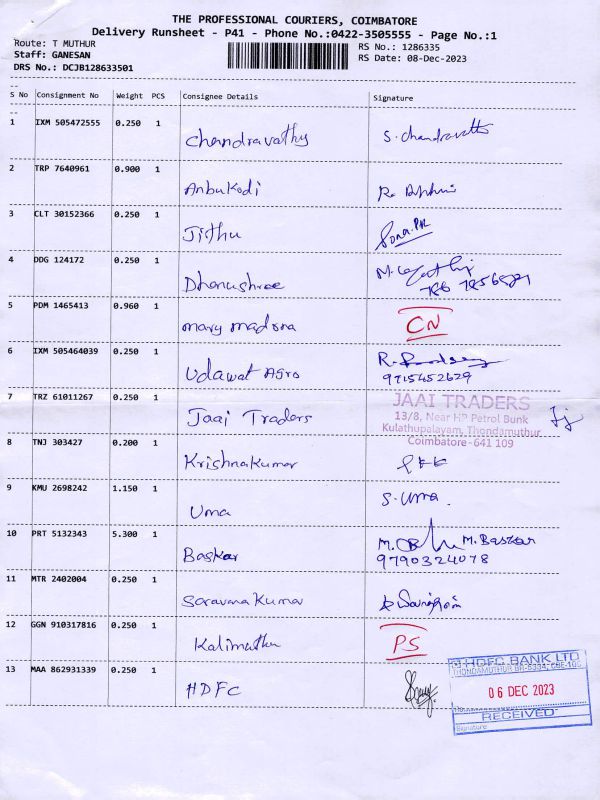 THE PROFESSIONAL COURIERS, COIMBATORE
Delivery Runsheet - P41 - Phone No.:0422-3505555 - Page No.:1
Route: T MUTHUR
RS No.: 1286335
Staff: GANESAN
RS Date: 08-Dec-2023
DRS No.: DCJB128633501
S No Consignment No Weight PCS Consignee Details Signature
1 IXM 505472555 0.250 1 Chandravathy S. Chandravathy
2 TRP 7640961 0.900 1 Anbukodi
3 CLT 30152366 0.250 1 Jithu
4 DDG 124172 0.250 1 Dhanushree
5 PDM 1465413 0.960 1 mary madona CN
6 IXM 505464039 0.250 1 Udawat Agro
9715452629
7 TRZ 61011267 0.250 1 Jaai Traders
JAAI TRADERS
13/8, Near HP Petrol Bunk
Kulathupalayam, Thondamuthur
Coimbatore-641 109
8 TNJ 303427 0.200 1 Krishnakumar
9 KMU 2698242 1.150 1 Uma S. Uma.
10 PRT 5132343 5.300 1 Baskar M. Baskar
9790324078
11 MTR 2402004 0.250 1 Saravanakumar
12 GGN 910317816 0.250 1 Kalimuthu PS
13 MAA 862931339 0.250 1 HDFC
HDFC BANK LTD
06 DEC 2023
RECEIVED
Signature